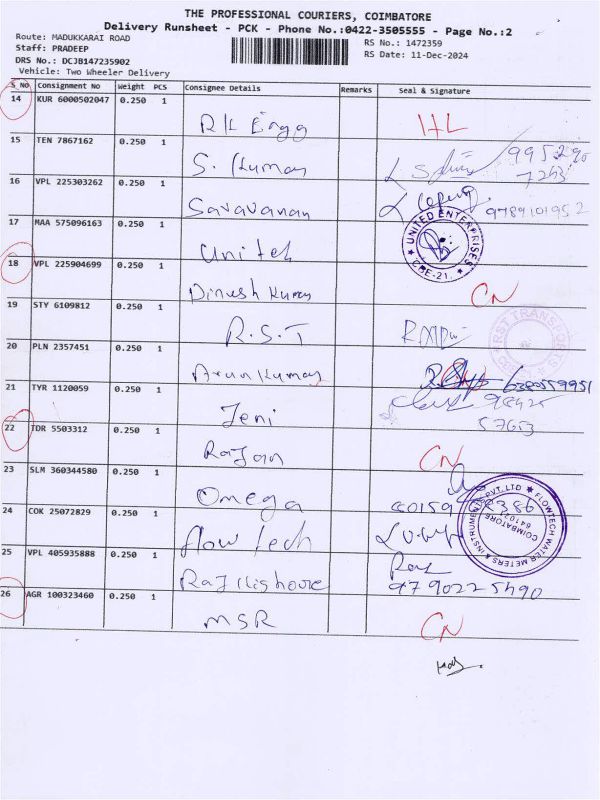 THE PROFESSIONAL COURIERS, COIMBATORE
Delivery Runsheet - PCK - Phone No.:0422-3505555 - Page No.:2
Route: MADUKKARAI ROAD
Staff: PRADEEP
DRS No.: DCJB147235902
Vehicle: Two Wheeler Delivery
RS No.: 1472359
RS Date: 11-Dec-2024
S No Consignment No Weight PCS Consignee Details Remarks Seal & Signature
14 KUR 6000502047 0.250 1
RK Engg
15 TEN 7867162 0.250 1
S. Kumar
16 VPL 225303262 0.250 1
Saravanan 9789101952
17 MAA 575096163 0.250 1
Unitech UNITED ENTERPRISES CBE-21.
18 VPL 225904699 0.250 1
Dinesh Kumar CN
19 STY 6109812 0.250 1
R.S.T FIRST TRANSPORTS
20 PLN 2357451 0.250 1
Arun Kumar 6380559951
21 TYR 1120059 0.250 1
Jeni 98425
57653
22 TDR 5503312 0.250 1
Rajan CN
23 SLM 360344580 0.250 1
Omega
24 COK 25072829 0.250 1
flow tech FLOWTECH WATER METERS INSTRUMENTS PVT. LTD COIMBATORE
25 VPL 405935888 0.250 1
Raj Kishore 9790225490
26 AGR 100323460 0.250 1
MSR CN